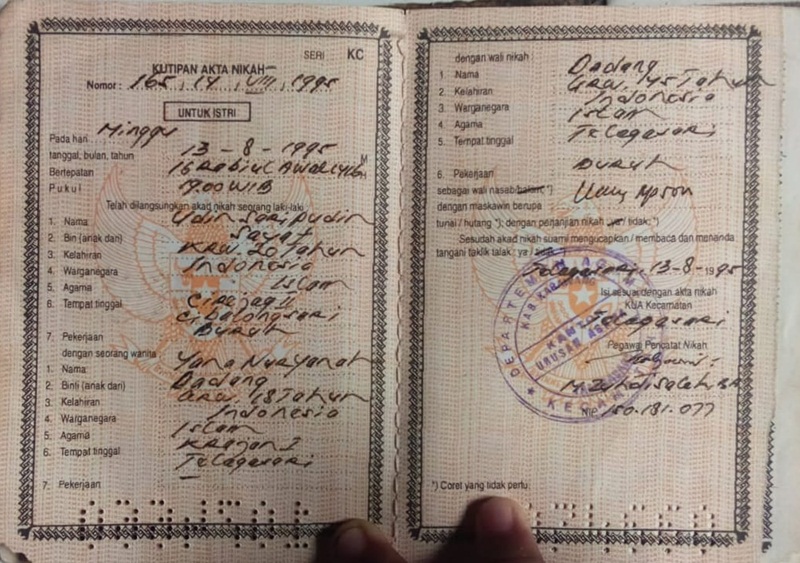 SERI KC
KUTIPAN AKTA NIKAH
Nomor : 165 / 14 / VIII / 1995
UNTUK ISTRI
Pada hari Minggu
tanggal, bulan, tahun 13 - 8 - 1995 M
Bertepatan 16 Rabiul Awal H
Pukul WIB
Telah dilangsungkan akad nikah seorang laki-laki
1. Nama Udin Saripudin
2. Bin (anak dari) Sayat
3. Kelahiran KRW. 20 Tahun
4. Warganegara Indonesia
5. Agama Islam
6. Tempat tinggal
Buruh
7. Pekerjaan
dengan seorang wanita
1. Nama Yana
2. Binti (anak dari) Dadang
3. Kelahiran KRW. 18 Tahun
4. Warganegara Indonesia
5. Agama Islam
6. Tempat tinggal Krajan I
Telagasari
7. Pekerjaan —
dengan wali nikah :
1. Nama Dadang
2. Kelahiran KRW. 45 Tahun
3. Warganegara Indonesia
4. Agama Islam
5. Tempat tinggal Telagasari
6. Pekerjaan Buruh
sebagai wali nasab/hakim *)
dengan maskawin berupa Uang
tunai / hutang *); dengan perjanjian nikah : ya / tidak. *)
Sesudah akad nikah suami mengucapkan / membaca dan menanda
tangani taklik talak : ya / tidak
Telagasari, 13 - 8 - 1995
Isi sesuai dengan akta nikah
KUA Kecamatan
Telagasari
Pegawai Pencatat Nikah
DEPARTEMEN AGAMA
KAB. KARAWANG
KANTOR
URUSAN AGAMA
KECAMATAN
NIP 150.181.077
*) Coret yang tidak perlu.